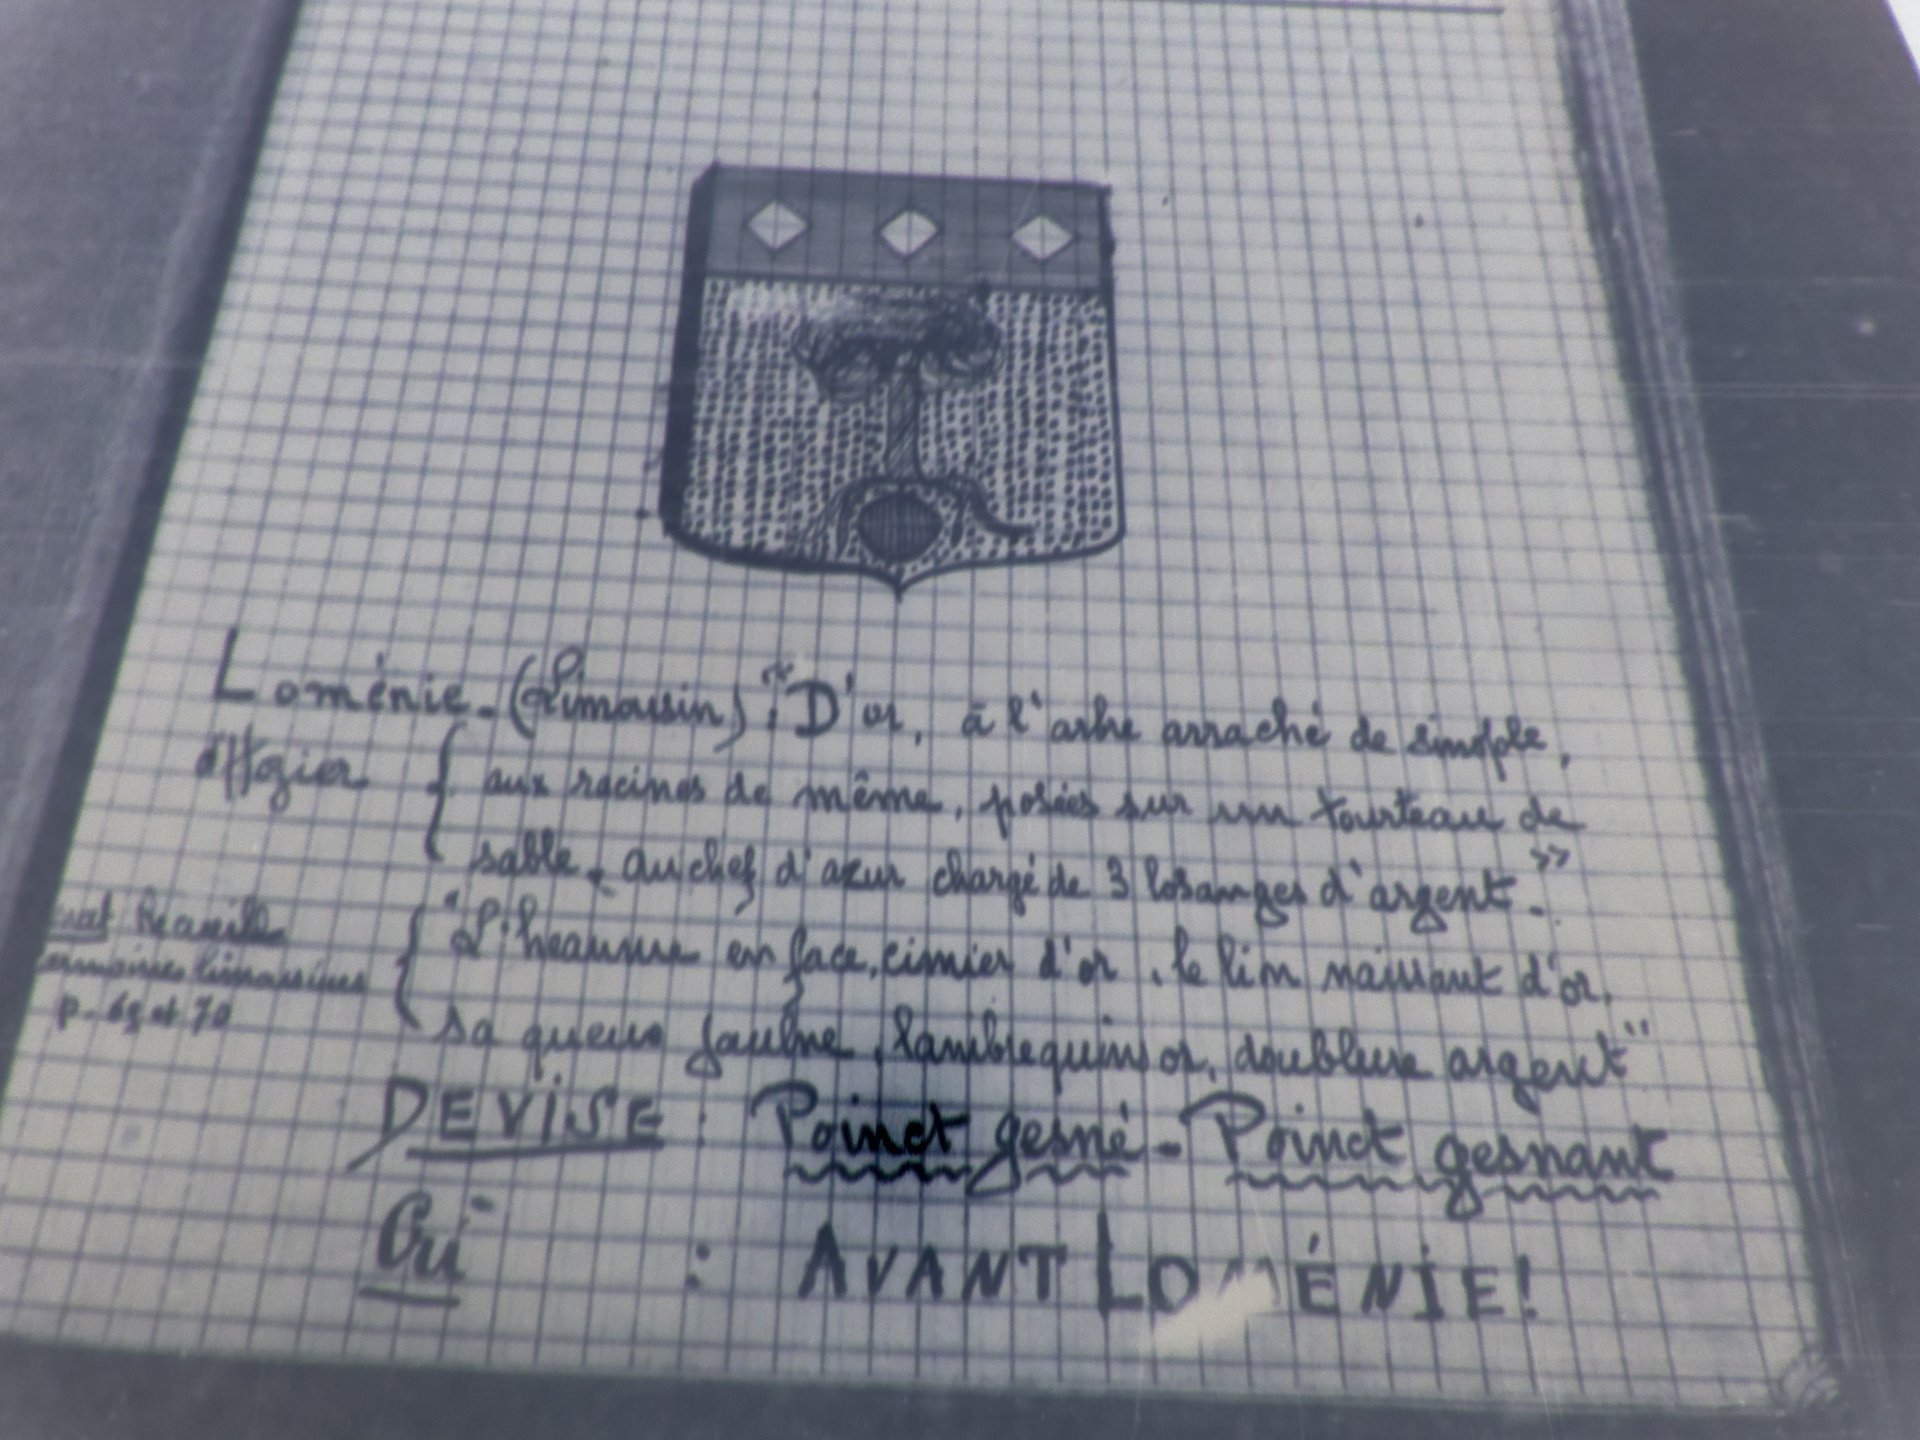 Loménie - (Limousin) : "D'or, à l'arbre arraché de sinople,
d'Hozier { aux racines de même, posées sur un tourteau de
sable, au chef d'azur chargé de 3 losanges d'argent."
"L'heaume en face, cimier d'or, le lion naissant d'or,
armoiries limousines
p. 69 et 70
sa queue faulne, lambrequins or, doublure argent"
DEVISE : Poinct gesné - Poinct gesnant
Cri : AVANT LOMÉNIE!